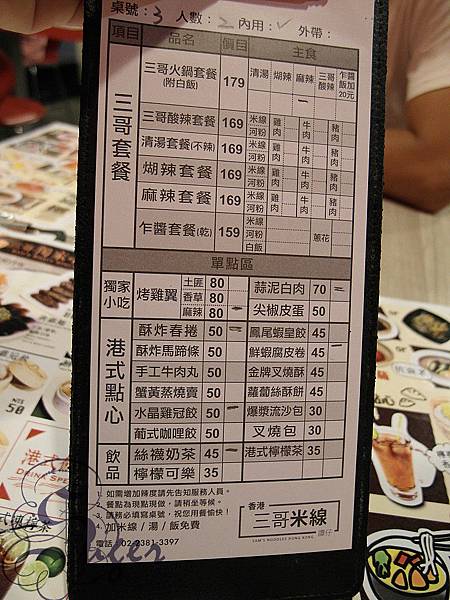 桌號：3 人數：2 內用：✓ 外帶：
項目 品名 價目 主食
三哥套餐
三哥火鍋套餐 (附白飯) 179 清湯 煳辣 麻辣 三哥酸辣 乍醬飯加20元
三哥酸辣套餐 169 米線 河粉 雞肉 牛肉 豬肉
清湯套餐(不辣) 169 米線 河粉 雞肉 牛肉 豬肉
煳辣套餐 169 米線 河粉 雞肉 牛肉 豬肉
麻辣套餐 169 米線 河粉 雞肉 牛肉 豬肉
乍醬套餐(乾) 159 米線 河粉 白飯 蔥花
單點區
獨家小吃
烤雞翼 土匪 80 香草 80 麻辣 80
蒜泥白肉 70
尖椒皮蛋 50
港式點心
酥炸春捲 50 鳳尾蝦皇餃 45
酥炸馬蹄條 50 鮮蝦腐皮卷 45
手工牛肉丸 50 金牌叉燒酥 45
蟹黃蒸燒賣 50 蘿蔔絲酥餅 45
水晶雞冠餃 50 爆漿流沙包 30
葡式咖哩餃 50 叉燒包 30
飲品
絲襪奶茶 45 港式檸檬茶 35
檸檬可樂 35
1. 如需增加辣度請先告知服務人員。
2. 餐點為現點現做，請稍坐等候。
3. 請務必填寫桌號，祝您用餐愉快！
4. 加米線／湯／飯免費
電話：02-2381-3397
香港
三哥米線
譚仔
SAM'S NOODLES HONG KONG
50